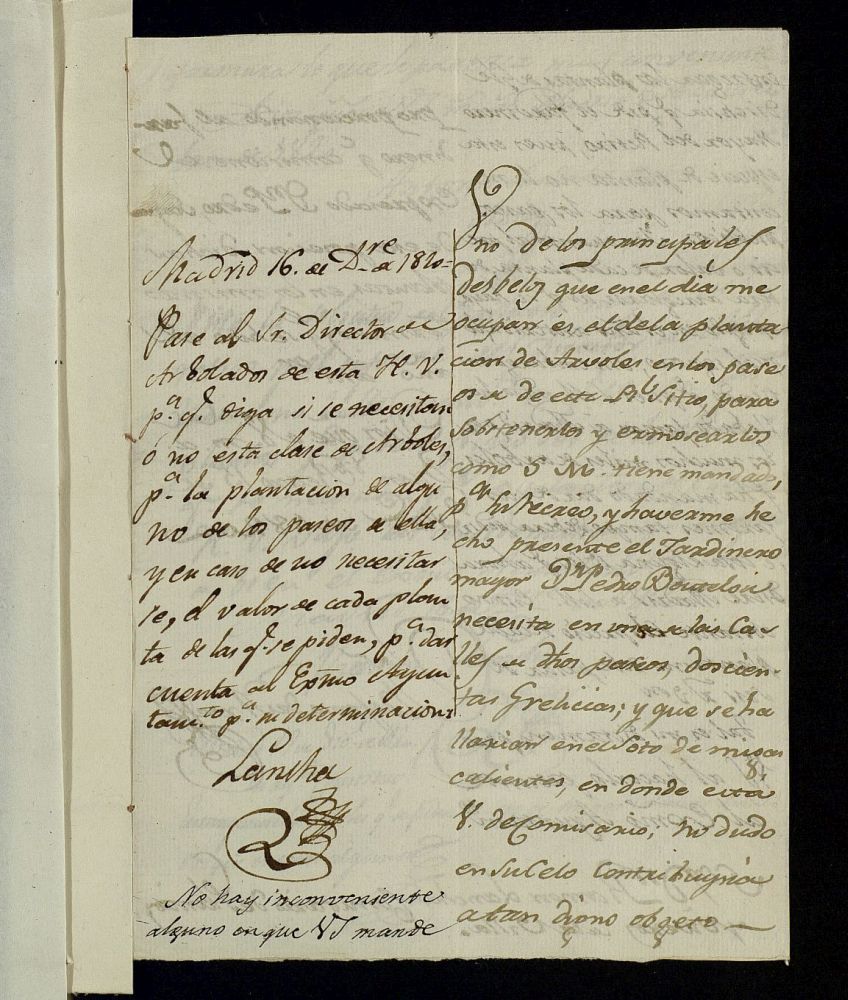 Madrid 16. de Dre de 1820=
Pase al Sr. Director de
Arbolados de esta H. V.
pa. qe. diga si se necesitan
ó no esta clase de Arboles,
pa. la plantacion de algu
no de los paseos de ella,
y en caso de no necesitar
se, el valor de cada plan
ta de las qe. se piden, pa. dar
cuenta al Exmo Ayun
tamto. pa. su determinacion.
Lansha
No hay inconveniente
alguno en que VS mande
Uno de los principales
desbelos que en el dia me
ocupan es el de la planta
cion de Arvoles en los pase
os de este Rl. Sitio, para
sobstenerlos y ermosearlos
como S M. tiene mandado,
pa. su recreo, y haverme he
cho presente el Jardinero
mayor Dn. Pedro Boutelou
necesita en una de las Ca-
lles de dhos paseos, doscien-
tas Grelicias; y que se ha
llarian en el Soto de migas
calientes, en donde esta
V. de Comisario; no dudo
en su Celo Contribuyria
a tan digno obgeto